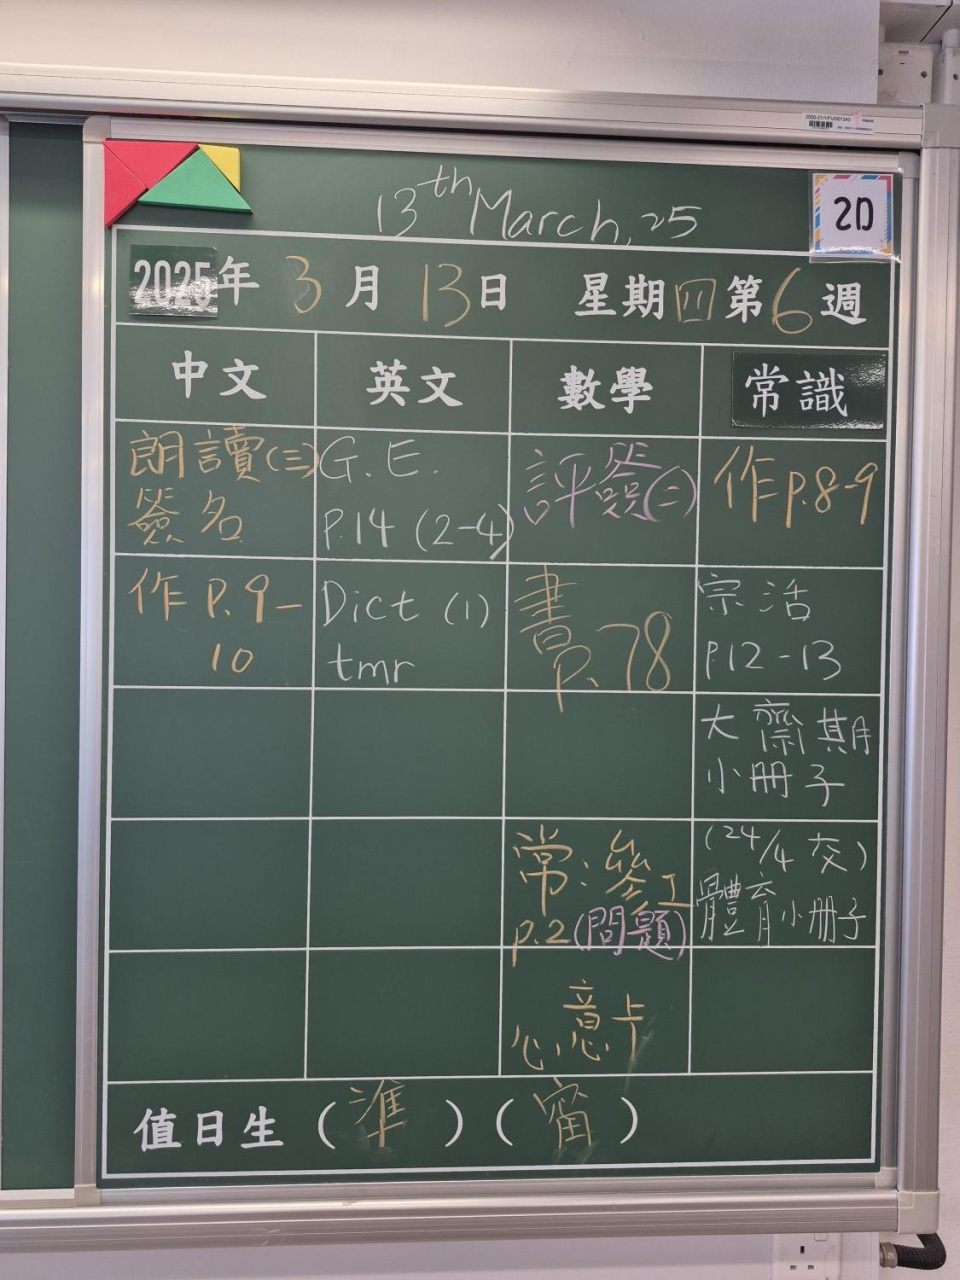 13th March, 25
2D
2025年3月13日 星期四第6週
中文 英文 數學 常識
朗讀(三)
簽名
G.E.
P.14 (2-4)
評簽(二)
作P.8-9
作 P.9-
10
Dict (1)
tmr
書
P.78
宗活
P.12-13
大齋期
小冊子
常:參工
p.2(問題)
(24/4 交)
體育小冊子
心意卡
值日生(準)(甯)